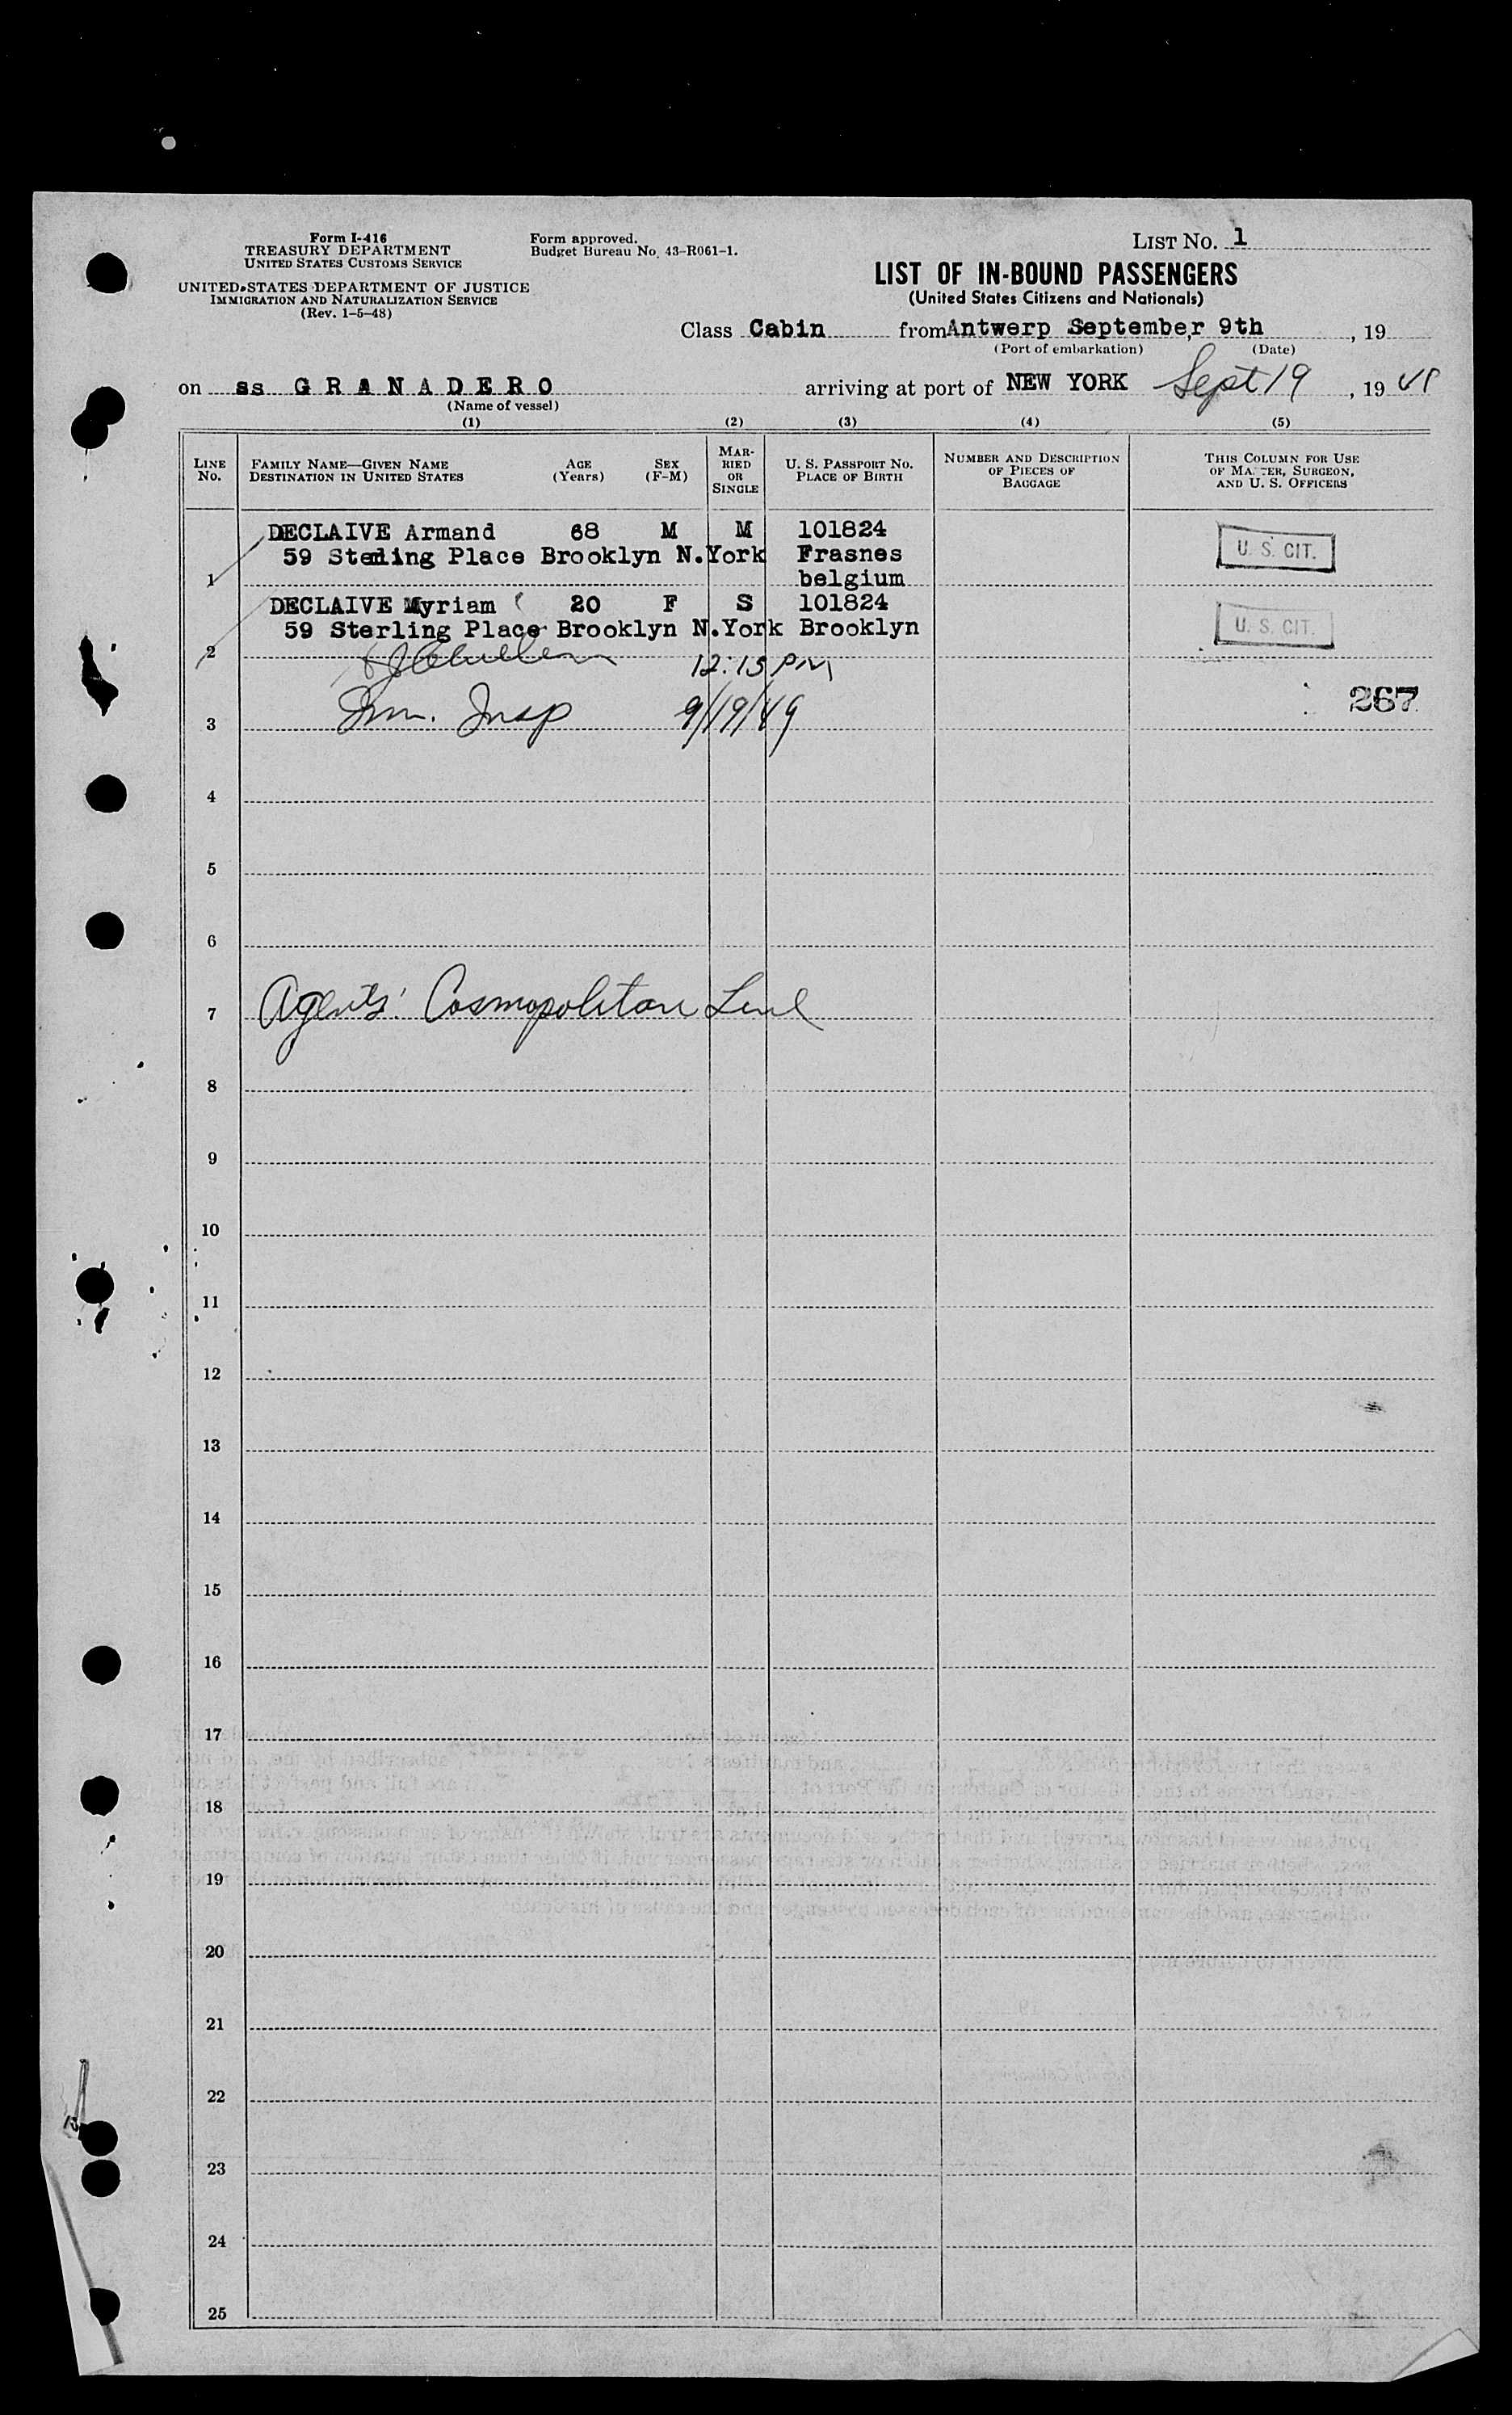 Form I-416
TREASURY DEPARTMENT
UNITED STATES CUSTOMS SERVICE
UNITED STATES DEPARTMENT OF JUSTICE
IMMIGRATION AND NATURALIZATION SERVICE
(Rev. 1-5-48)
Form approved.
Budget Bureau No. 43-R061-1.
LIST NO. 1
LIST OF IN-BOUND PASSENGERS
(United States Citizens and Nationals)
Class Cabin from Antwerp September 9th, 19
(Port of embarkation) (Date)
on ss GRANADERO arriving at port of NEW YORK Sept 19, 19
(Name of vessel)
(1) (2) (3) (4) (5)
LINE NO.
FAMILY NAME—GIVEN NAME
DESTINATION IN UNITED STATES
AGE (Years)
SEX (F-M)
MARRIED OR SINGLE
U. S. PASSPORT NO.
PLACE OF BIRTH
NUMBER AND DESCRIPTION OF PIECES OF BAGGAGE
THIS COLUMN FOR USE OF MASTER, SURGEON, AND U. S. OFFICERS
DECLAIVE Armand 68 M M 101824
59 Sterling Place Brooklyn N.York Frasnes
1 belgium
U. S. CIT.
DECLAIVE Myriam 20 F S 101824
59 Sterling Place Brooklyn N.York Brooklyn
U. S. CIT.
2 12:15 PM
Imm. Insp 9/19/49
267
3
4
5
6
7 Agents: Cosmopolitan Line
8
9
10
11
12
13
14
15
16
17
18
19
20
21
22
23
24
25